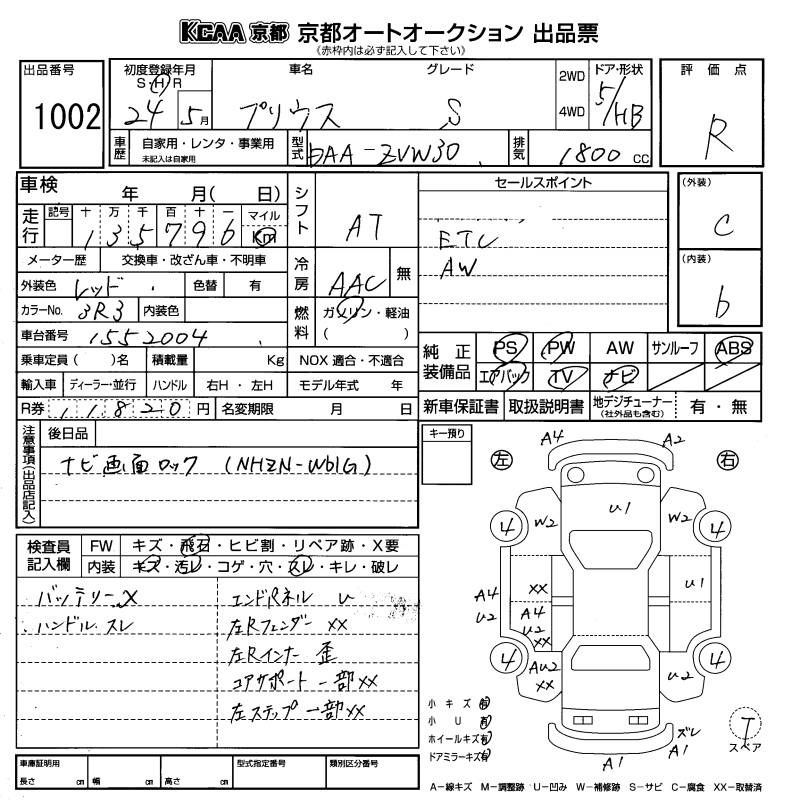 KCAA 京都 京都オートオークション 出品票
(赤枠内は必ず記入して下さい)
出品番号
1002
初度登録年月
S H R
24 5月
車名 グレード
プリウス S
2WD
4WD
ドア・形状
5/HB
評価点
R
車歴 自家用・レンタ・事業用
未記入は自家用
型式 DAA-ZVW30
排気 1800 cc
車検 年 月( 日)
走行 記号 十 万 千 百 十 一 マイル
135796 Km
メーター歴 交換車・改ざん車・不明車
外装色 レッド 色替 有
カラーNo. 3R3 内装色
車台番号 1552004
乗車定員( )名 積載量 Kg NOX 適合・不適合
輸入車 ディーラー・並行 ハンドル 右H・左H モデル年式 年
R券 11820円 名変期限 月 日
シフト AT
冷房 AAC 無
燃料 ガソリン・軽油
( )
セールスポイント
ETC
AW
(外装)
C
(内装)
b
純正装備品 PS PW AW サンルーフ ABS
エアバック TV ナビ
新車保証書 取扱説明書 地デジチューナー(社外品も含む) 有・無
注意事項(出品店記入)
後日品
ナビ画面ロック (NHZN-W61G)
キー預り
検査員記入欄
FW キズ・飛石・ヒビ割・リペア跡・X要
内装 キズ・汚レ・コゲ・穴・スレ・キレ・破レ
バッテリーX
ハンドル スレ
エンドパネル U
左Rフェンダー XX
左Rインナー 歪
コアサポート一部XX
左ステップ一部XX
左 右
A4 A2
U1
W2 W2
4 4
XX U1
A4
U2
A4
U2
XX
4 4
AU2
XX
U2
小キズ 有
小U 有
ホイールキズ 有
ドアミラーキズ 有
A1
ズレ
A1
T
スペア
車庫証明用
長さ cm 幅 cm 高さ cm
型式指定番号
類別区分番号
A-線キズ M-調整跡 U-凹み W-補修跡 S-サビ C-腐食 XX-取替済